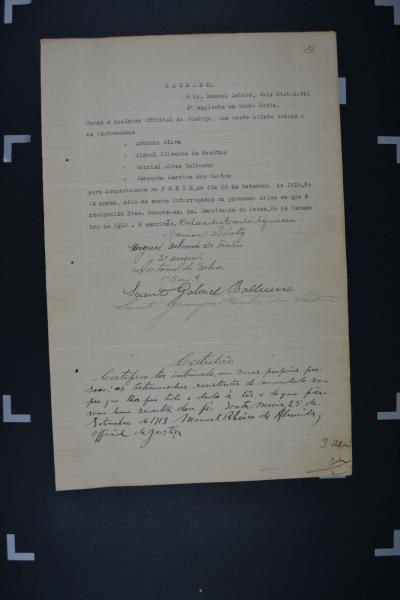 M A N D A D O.
O Dr. Manoel Lobato, Juiz Districtal
1º supplente em Santa Maria.
Mando a qualquer Official de Justiça, que nesta cidade intime a
as testemunhas
" Antonio Silva
" Miguel Silveira de Freitas
" Gabriel Alves Balbueno
" Jeronymo Martins dos Santos
para comparecerem no F O R U M, no dia 28 de Setembro de 1918, ás
14 horas, afim de serem interrogados no processo crime em que é
réo Dias. Cumpra-se. Eu, Escrivão do Crime, de Setem
bro de 1918. O escrivão,
Manoel Lobato
Miguel Silveira de Freitas
2º sargento
Antonio da Silva
1º Sarg
Sciente Gabriel Balbueno
Sciente Jeronymo Martins dos Santos
Certidão
Certifico ter intimado, em suas proprias pes
soas as testemunhas constantes do mandado su
pra que lhes foi lido e dado á lêr e de que fica
ram bem scientes, dou fé. Santa Maria, 25 de
Setembro de 1918 Manoel Ribeiro de Almeida,
Official de Justiça